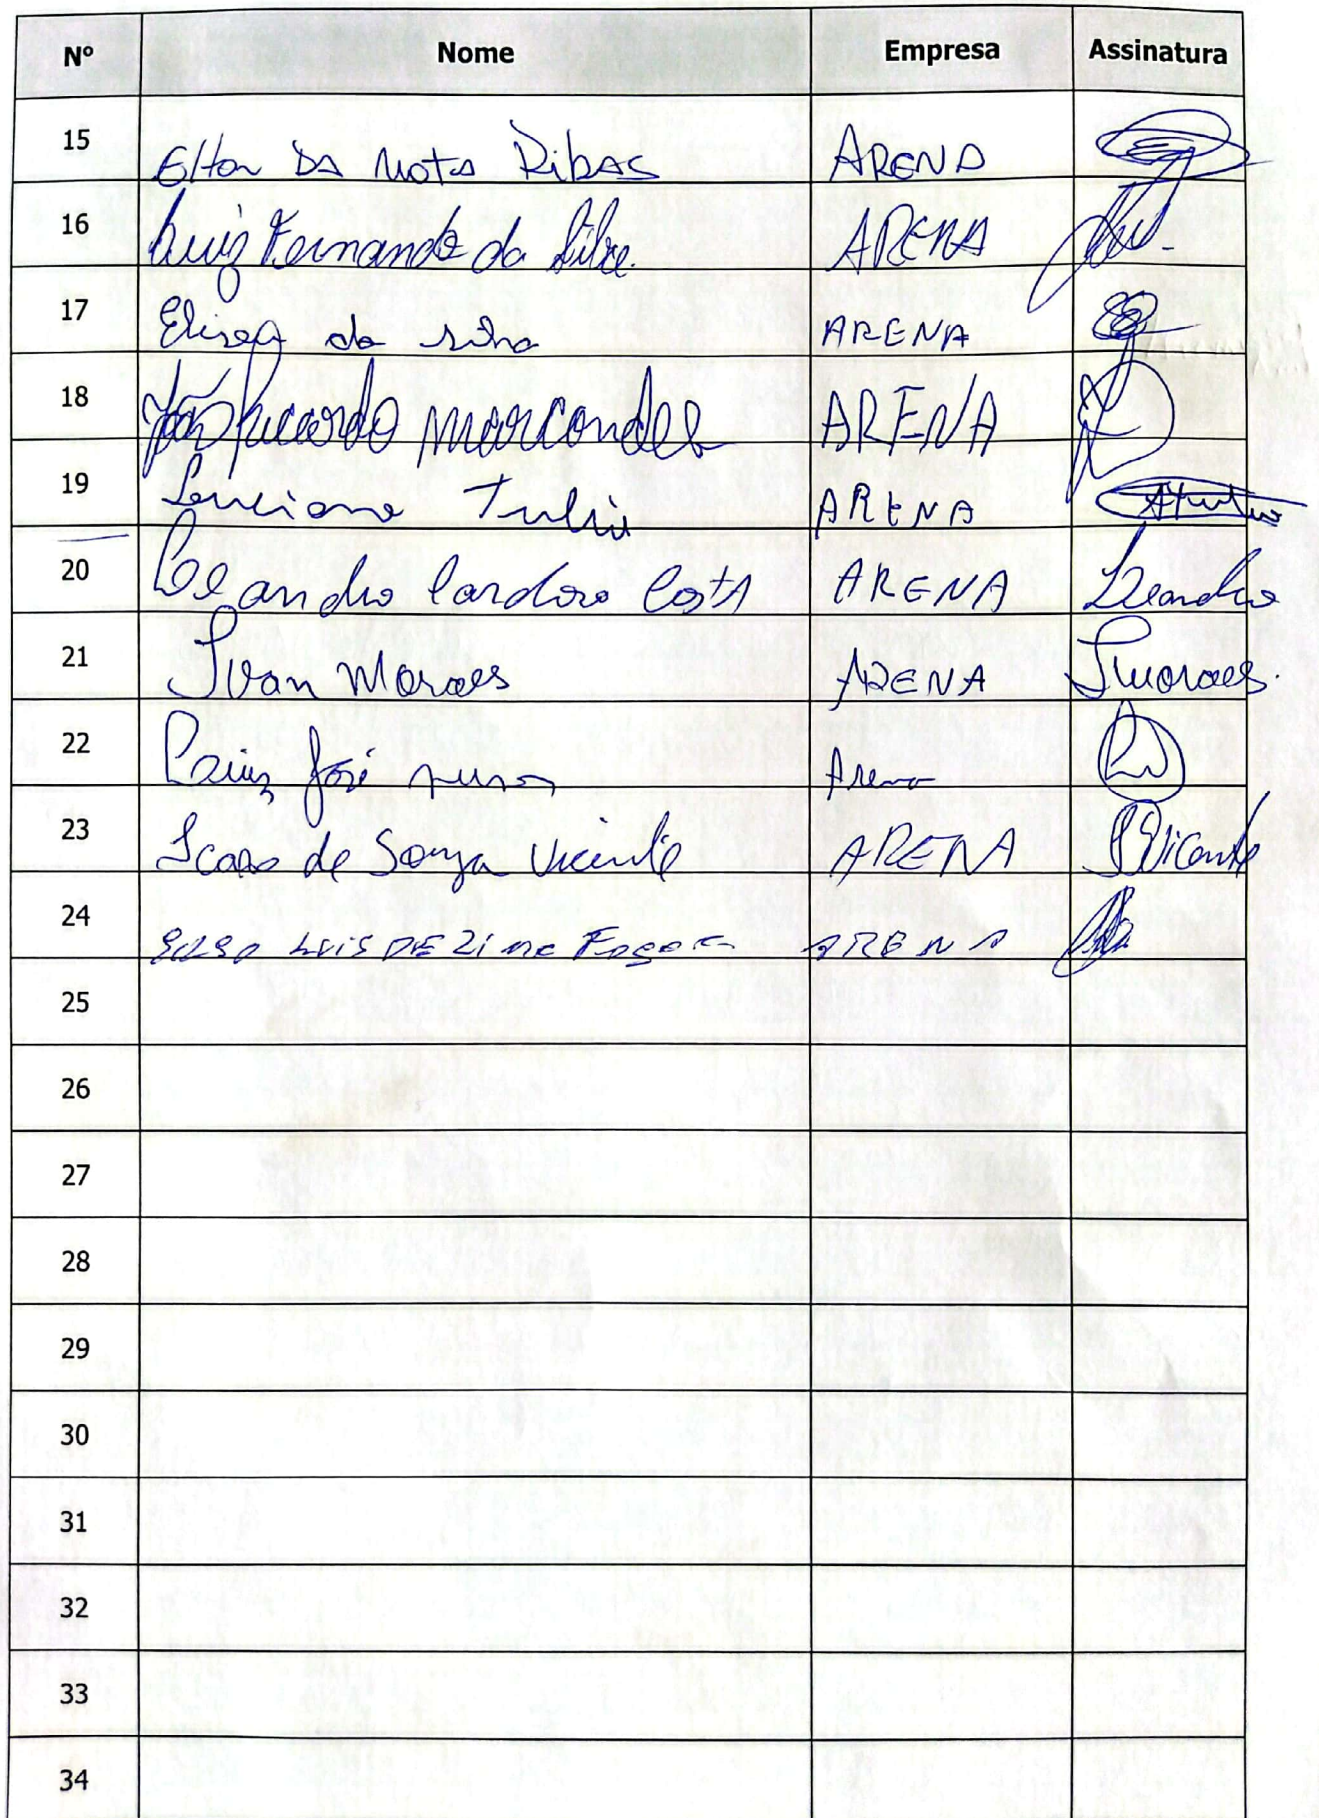 Nº Nome Empresa Assinatura
15 Elton DA Mota Ribas ARENA
16 Luiz Fernando da Silva ARENA
17 Eliseo da Silva ARENA
18 João Ricardo Marcondes ARENA
19 Luciano Tulio ARENA
20 Leandro Cardoso Costa ARENA Leandro
21 Ivan Moraes ARENA Imoraes.
22 Luiz José Arena
23 Icaro de Souza Vicente ARENA Vicente
24 LUIS DE ARENA
25
26
27
28
29
30
31
32
33
34